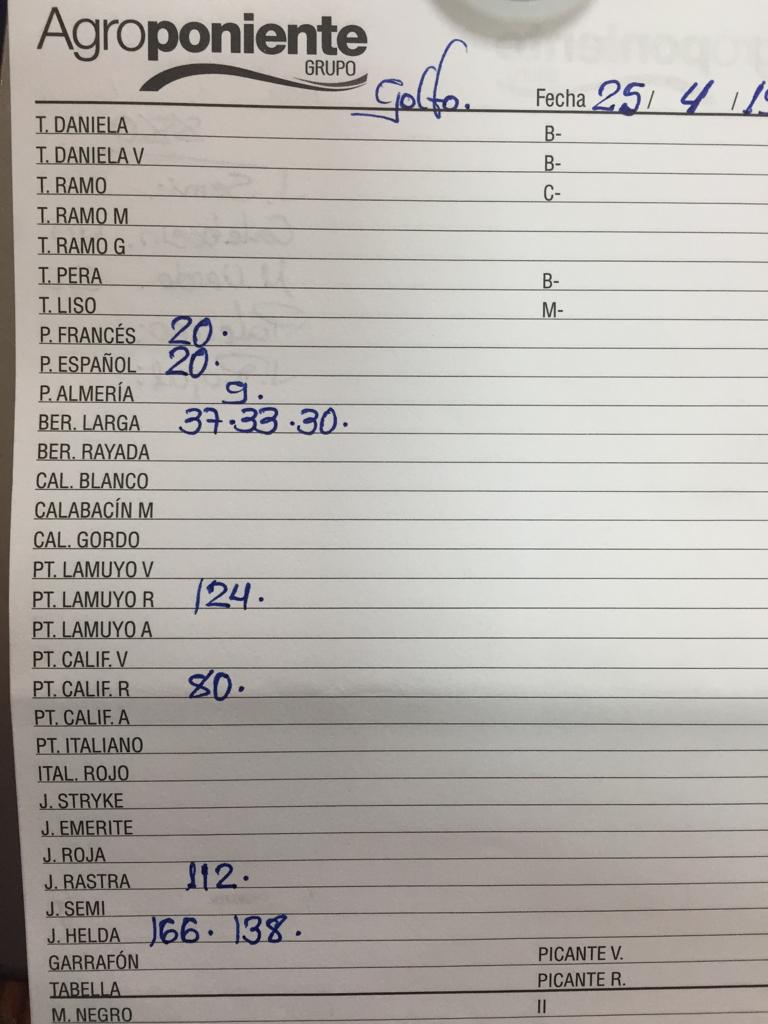 Agroponiente
GRUPO
Golfo. Fecha 25/ 4 /
T. DANIELA B-
T. DANIELA V B-
T. RAMO C-
T. RAMO M
T. RAMO G
T. PERA B-
T. LISO M-
P. FRANCÉS 20.
P. ESPAÑOL 20.
P. ALMERÍA 9.
BER. LARGA 37.33.30.
BER. RAYADA
CAL. BLANCO
CALABACÍN M
CAL. GORDO
PT. LAMUYO V
PT. LAMUYO R 124.
PT. LAMUYO A
PT. CALIF. V
PT. CALIF. R 80.
PT. CALIF. A
PT. ITALIANO
ITAL. ROJO
J. STRYKE
J. EMERITE
J. ROJA
J. RASTRA 112.
J. SEMI
J. HELDA 166. 138.
GARRAFÓN PICANTE V.
TABELLA PICANTE R.
M. NEGRO II